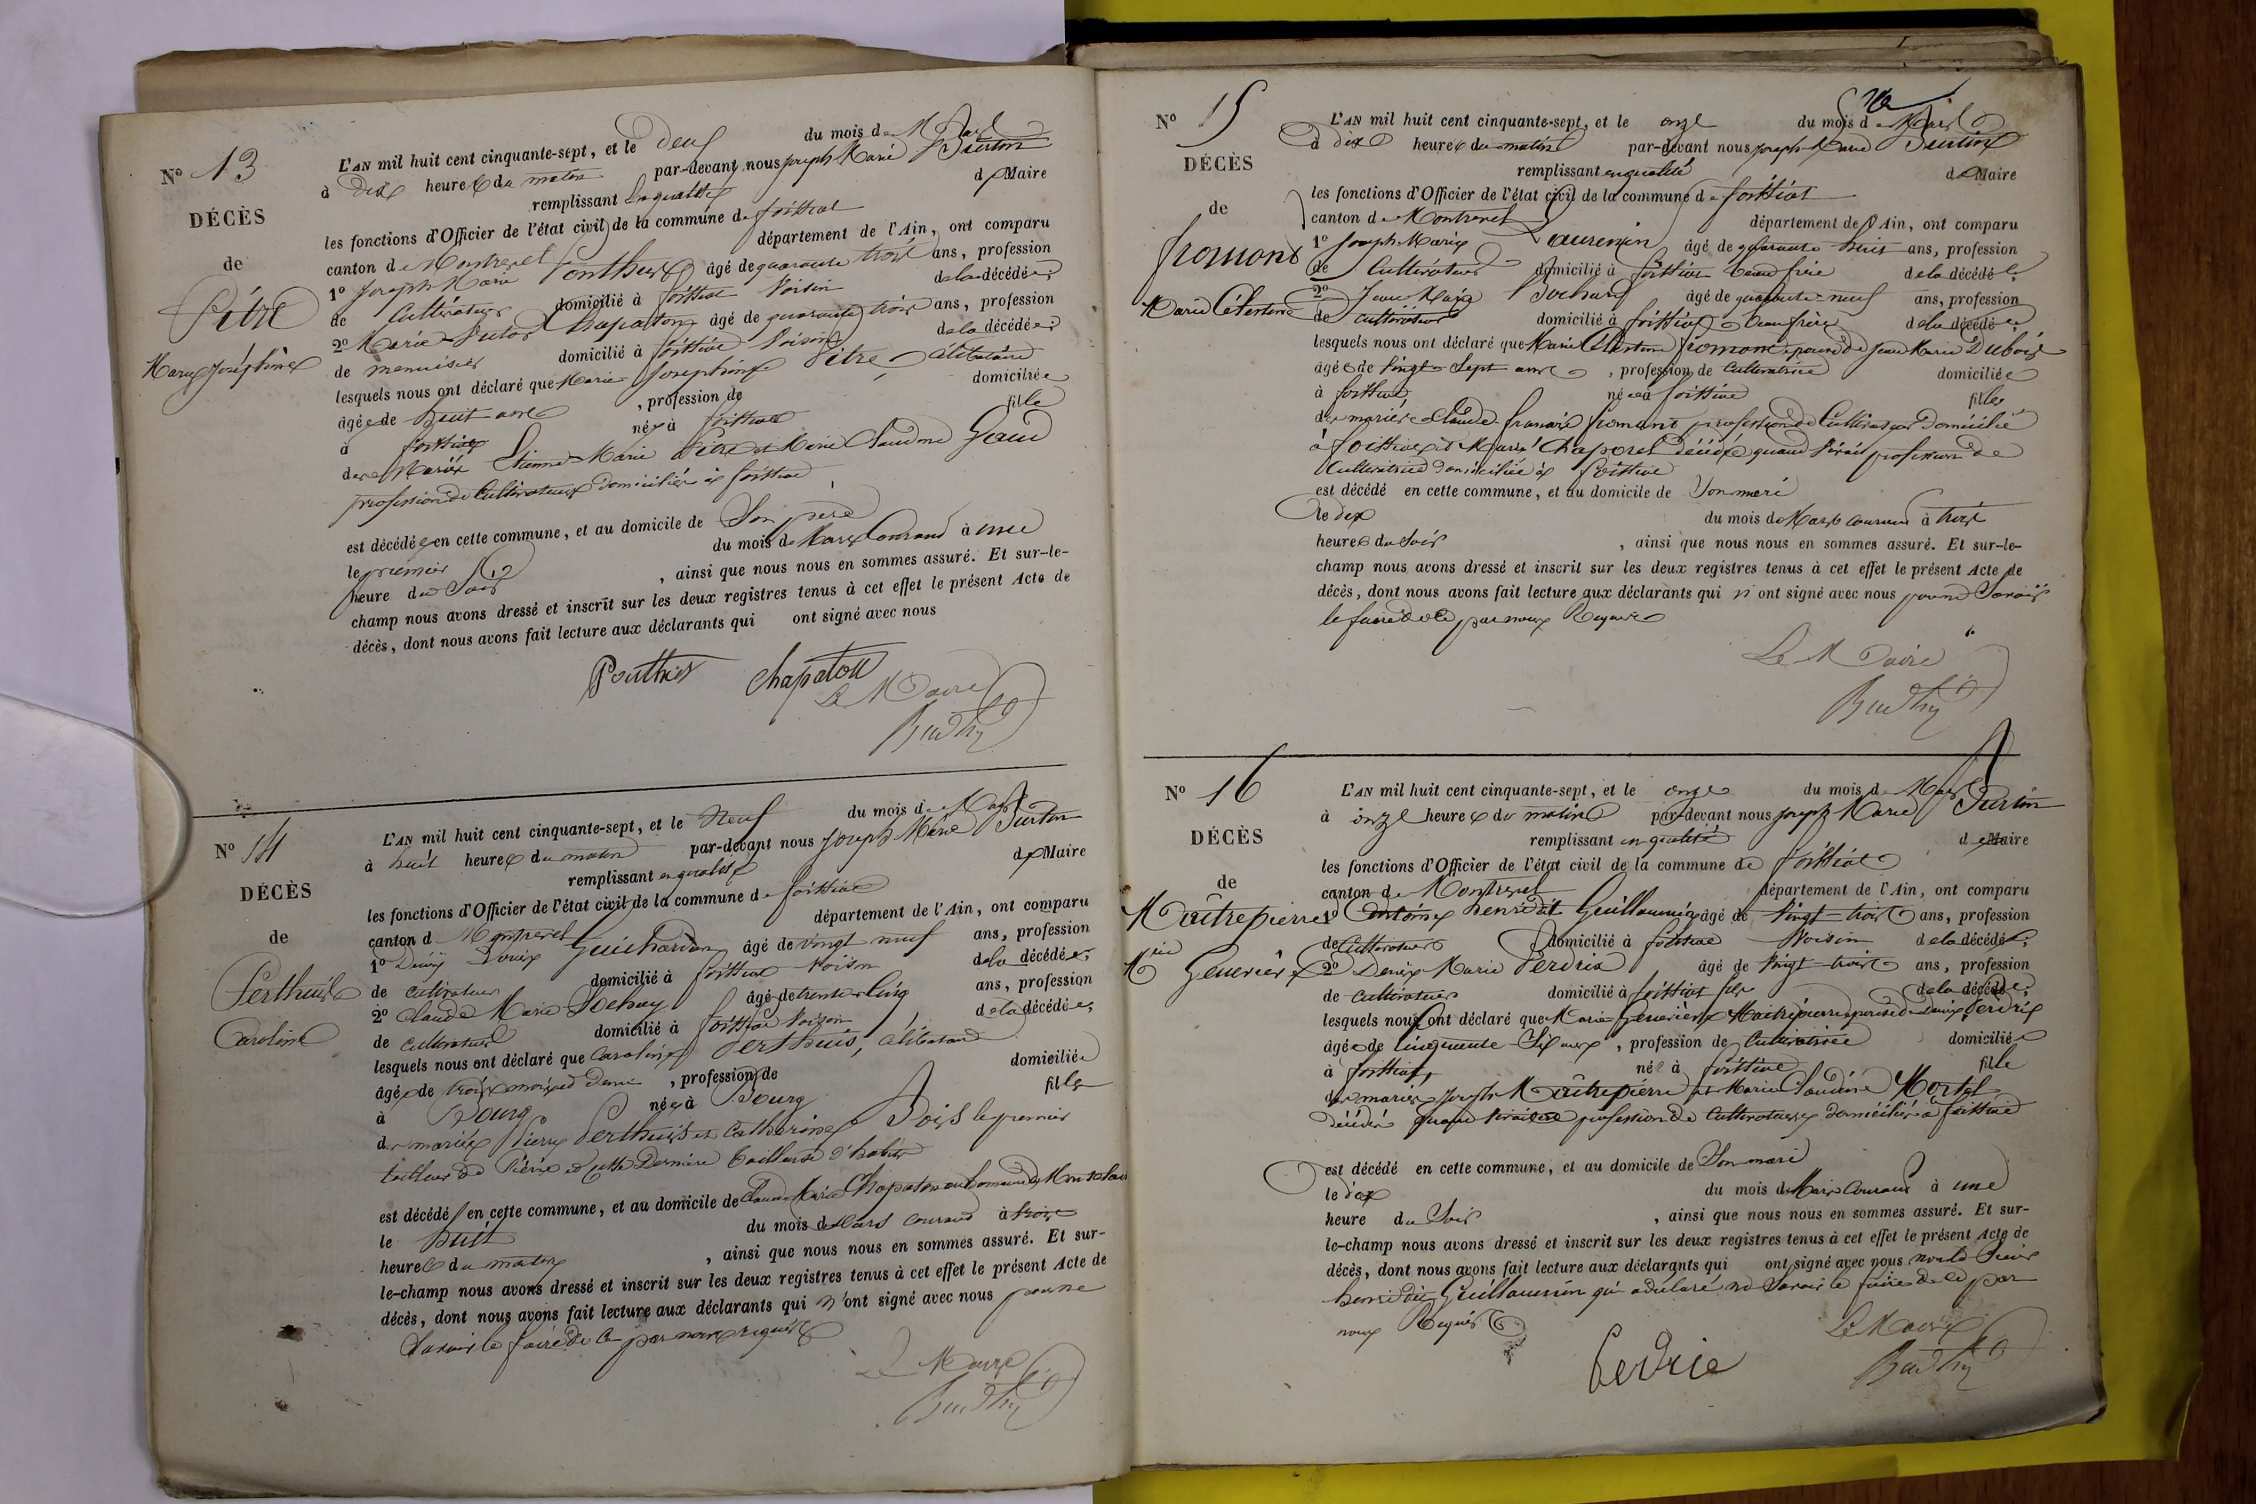 N° 13
DÉCÈS
de
Pitre
Marie Joséphine
L'AN mil huit cent cinquante-sept, et le deux du mois de Mars
à dix heures du matin par-devant nous Joseph Marie Burtin
remplissant en qualité de Maire
les fonctions d'Officier de l'état civil de la commune de foissiat
canton de Montrevel département de l'Ain, ont comparu
1° Joseph Marie Ponthus âgé de quarante trois ans, profession
de Cultivateur domicilié à foissiat voisin de la décédée;
2° Marie Victor Chapaton âgé de quarante trois ans, profession
de menuisier domicilié à foissiat voisin de la décédée;
lesquels nous ont déclaré que Marie Josephine Pitre célibataire
âgée de huit ans, profession de domiciliée
à foissiat née à foissiat fille
des mariés Etienne Marie Pitre et Marie Claudine Gaud
profession de Cultivateurs domiciliés à foissiat
est décédée en cette commune, et au domicile de Son père
le premier du mois de Mars Courant à une
heure du Soir, ainsi que nous nous en sommes assuré. Et sur-le-
champ nous avons dressé et inscrit sur les deux registres tenus à cet effet le présent Acte de
décès, dont nous avons fait lecture aux déclarants qui ont signé avec nous
chapaton
Le Maire
N° 14
DÉCÈS
de
Perthuis
Caroline
L'AN mil huit cent cinquante-sept, et le neuf du mois de Mars
à huit heures du matin par-devant nous Joseph Marie Burtin
remplissant en qualité de Maire
les fonctions d'Officier de l'état civil de la commune de foissiat
canton de Montrevel département de l'Ain, ont comparu
1° Denis Louis Guichardon âgé de vingt neuf ans, profession
de cultivateur domicilié à foissiat voisin de la décédée;
2° Claude Marie âgé de trente cinq ans, profession
de cultivateur domicilié à foissiat voisin de la décédée;
lesquels nous ont déclaré que Caroline Perthuis, célibataire
âgée de trois mois et demi, profession de domiciliée
à Bourg née à Bourg fille
des mariés Pierre Perthuis et Catherine Bois le premier
tailleur de Pierre et cette Dernière tailleuse d'habits
est décédé en cette commune, et au domicile de Claude Marie Chapaton
le huit du mois de Mars courant à trois
heures du matin, ainsi que nous nous en sommes assuré. Et sur-
le-champ nous avons dressé et inscrit sur les deux registres tenus à cet effet le présent Acte de
décès, dont nous avons fait lecture aux déclarants qui n'ont signé avec nous pour ne
Savoir le faire de ce par nous requis
Le Maire
N° 15
DÉCÈS
de
fromont
Marie Célestine
L'AN mil huit cent cinquante-sept, et le onze du mois de Mars
à dix heures du matin par-devant nous Joseph Marie Burtin
remplissant en qualité de Maire
les fonctions d'Officier de l'état civil de la commune de foissiat
canton de Montrevel département de l'Ain, ont comparu
1° Joseph Marie Laurencin âgé de quarante huit ans, profession
de Cultivateur domicilié à foissiat beau frère de la décédée
2° Jean Marie Bochard âgé de quarante-neuf ans, profession
de cultivateur domicilié à foissiat beau frère de la décédée
lesquels nous ont déclaré que Marie Célestine fromont épouse de Jean Marie Dubois
âgée de vingt-Sept ans, profession de Cultivatrice domiciliée
à foissiat née à foissiat fille
des mariés Claude françois fromont profession de Cultivateur domicilié
à foissiat et Marie Chaporel décédée quand vivait profession de
Cultivatrice domiciliée à foissiat
est décédé en cette commune, et au domicile de Son mari
le dix du mois de Mars courant à trois
heures du Soir, ainsi que nous nous en sommes assuré. Et sur-le-
champ nous avons dressé et inscrit sur les deux registres tenus à cet effet le présent Acte de
décès, dont nous avons fait lecture aux déclarants qui n'ont signé avec nous pour ne Savoir
le faire de ce par nous Requis
Le Maire
N° 16
DÉCÈS
de
Maîtrepierre
Mie Geneviève
L'AN mil huit cent cinquante-sept, et le onze du mois de Mars
à onze heures du matin par-devant nous Joseph Marie Burtin
remplissant en qualité de Maire
les fonctions d'Officier de l'état civil de la commune de foissiat
canton de Montrevel département de l'Ain, ont comparu
1° Antoine henri dit Guillaumin âgé de vingt-trois ans, profession
de Cultivateur domicilié à foissiat voisin de la décédée;
2° Denis Marie Perdrix âgé de vingt-trois ans, profession
de Cultivateur domicilié à foissiat fils de la décédée;
lesquels nous ont déclaré que Marie Geneviève Maitrepierre épouse de Denis Perdrix
âgée de cinquante Six ans, profession de Cultivatrice domiciliée
à foissiat, née à foissiat fille
des mariés Joseph Maîtrepierre et Marie Claudine Mortel
décédés quand vivaient profession de Cultivateurs domiciliés à foissiat
est décédé en cette commune, et au domicile de Son mari
le dix du mois de Mars Courant à une
heure du Soir, ainsi que nous nous en sommes assuré. Et sur-
le-champ nous avons dressé et inscrit sur les deux registres tenus à cet effet le présent Acte de
décès, dont nous avons fait lecture aux déclarants qui ont signé avec nous
henri dit Guillaumin qui a déclaré ne Savoir le faire de ce par
nous Requis
Perdrie
Le Maire